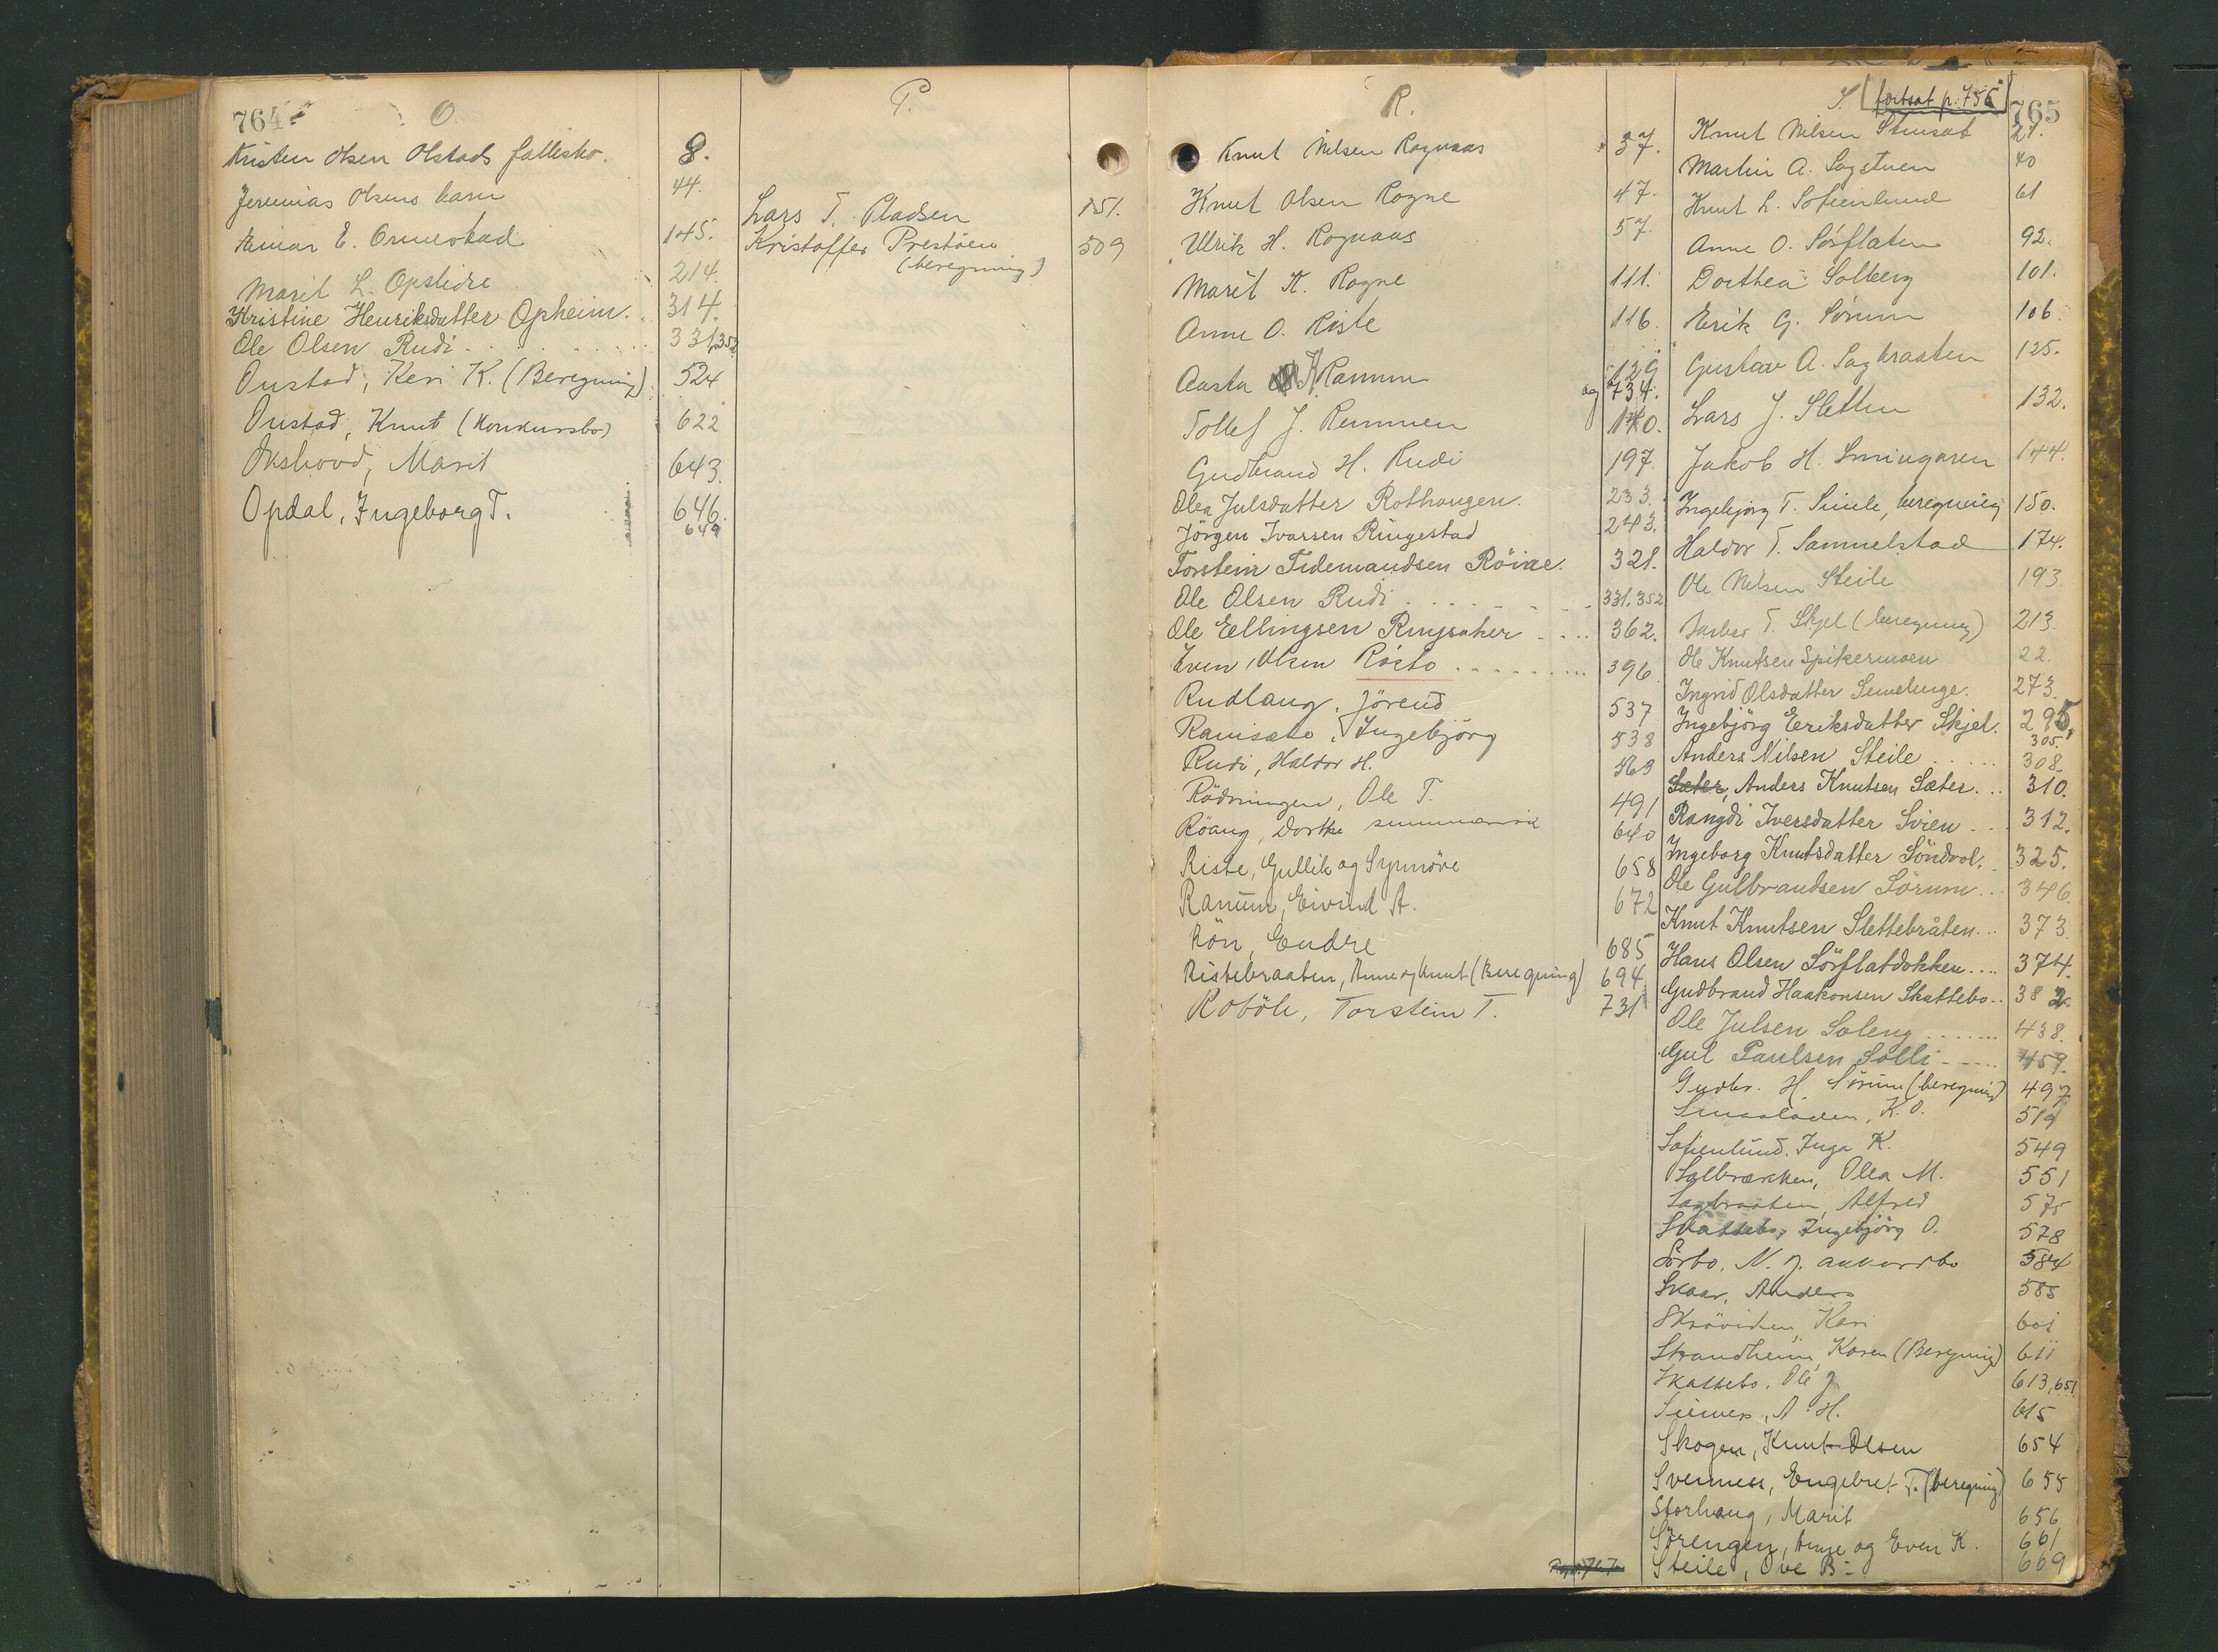 764
O
Kristen Olsen Olstads fallisbo. 8.
Jeremias Olsens barn 44.
E. Ormestad 145.
Marit L. Opslidre 214.
Kristine Henriksdatter Opheim. 314.
Ole Olsen Rudi 331,352
Oustad, Keri K. (Beregning) 524
Oustad, Knut (Konkursbo) 622
Økshovd, Marit 643.
Opdal, Ingeborg T. 646.
649
P.
Lars T. Pladsen 151.
Kristoffer Prestöen 509
(beregning)
R.
Knut Nilsen Rognaas 37.
Knut Olsen Rogne 47.
Ulrik H. Rognaas 57.
Marit K. Rogne 111.
Anne O. Riste 116.
Aasta K Ranum 129
og 734.
Tollef J. Remmen 140.
Gudbrand H. Rudi 197.
Olea Julsdatter Rothaugen. 233.
Jörgen Ivarsen Ringestad 243.
Torstein Tidemandsen Röine. 321.
Ole Olsen Rudi 331.352
Ole Ellingsen Ringsaker 362.
Even Olsen Rösto 396
Rudlang, Jörend 537
Ranisæte, Ingebjörg 538
Rudi, Haldor H. 463
Rödningen, Ole T. 491
Röang, Dorthe 640
Riste, Gullik og Synnöve 658
Ranum, Eivind A. 672
Rön, Endre 685
Ristebraaten, Anne og Knut (Beregning) 694
Roböle, Torstein T. 731
S. [fortsat p. 756] 765
Knut Nilsen Stensat 21.
Martin A. Sagstuen 40
Knut L. Sofienlund 61
Anne O. Sörflaten 92.
Dorthea Solberg 101.
Erik G. Sörum 106
Gustav A. Sagbraaten 125.
Lars J. Sletten 132.
Jakob H. Smingaren 144.
Ingebjörg T. Simle, beregning 150.
Haldor T. Sammelstad 174.
Ole Nilsen Steile 193
T. Skjel (beregning) 213.
Ole Knutsen Spikermoen 22.
Ingrid Olsdatter Semelenge. 273.
Ingebjörg Eriksdatter Skjel. 295,
305.
Anders Nilsen Steile 308
Sæter, Anders Knutsen Sæter 310.
Rangdi Iversdatter Svien 312.
Ingeborg Knutsdatter Söndvol. 325.
Ole Gulbrandsen Sörum 346.
Knut Knutsen Slettebråten 373.
Hans Olsen Sörflatdokken 374.
Gudbrand Haakonsen Skattebo 382.
Ole Julsen Soleng 438.
Gul Paulsen Solli 459.
Gudbr. H. Sörum (beregning) 497
Smaaladen, K. O. 519
Sofienlund, Inga K. 549
Solbrækken, Olea M. 551
Sagbraaten, Alfred 575
Skattebo, Ingebjörg O. 578
Sörbo, N. J. akkordbo 584
Skaar, Anders 585
Skröviden, Kari 601
Strandheim, Karen (Beregning) 611
Skattebo, Ole J 613,651
Siemers, A. H. 615
Skogen, Knut Olsen 654
Svennes, Engebret T. (beregning) 655
Storhaug, Marit 656
Sörengen, Anne og Even K. 661
Steile, Ove B. 669